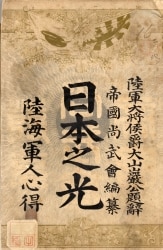 陸軍大將侯爵大山巖公題辭
帝國尚武會編纂
日本之光
陸海軍人心得